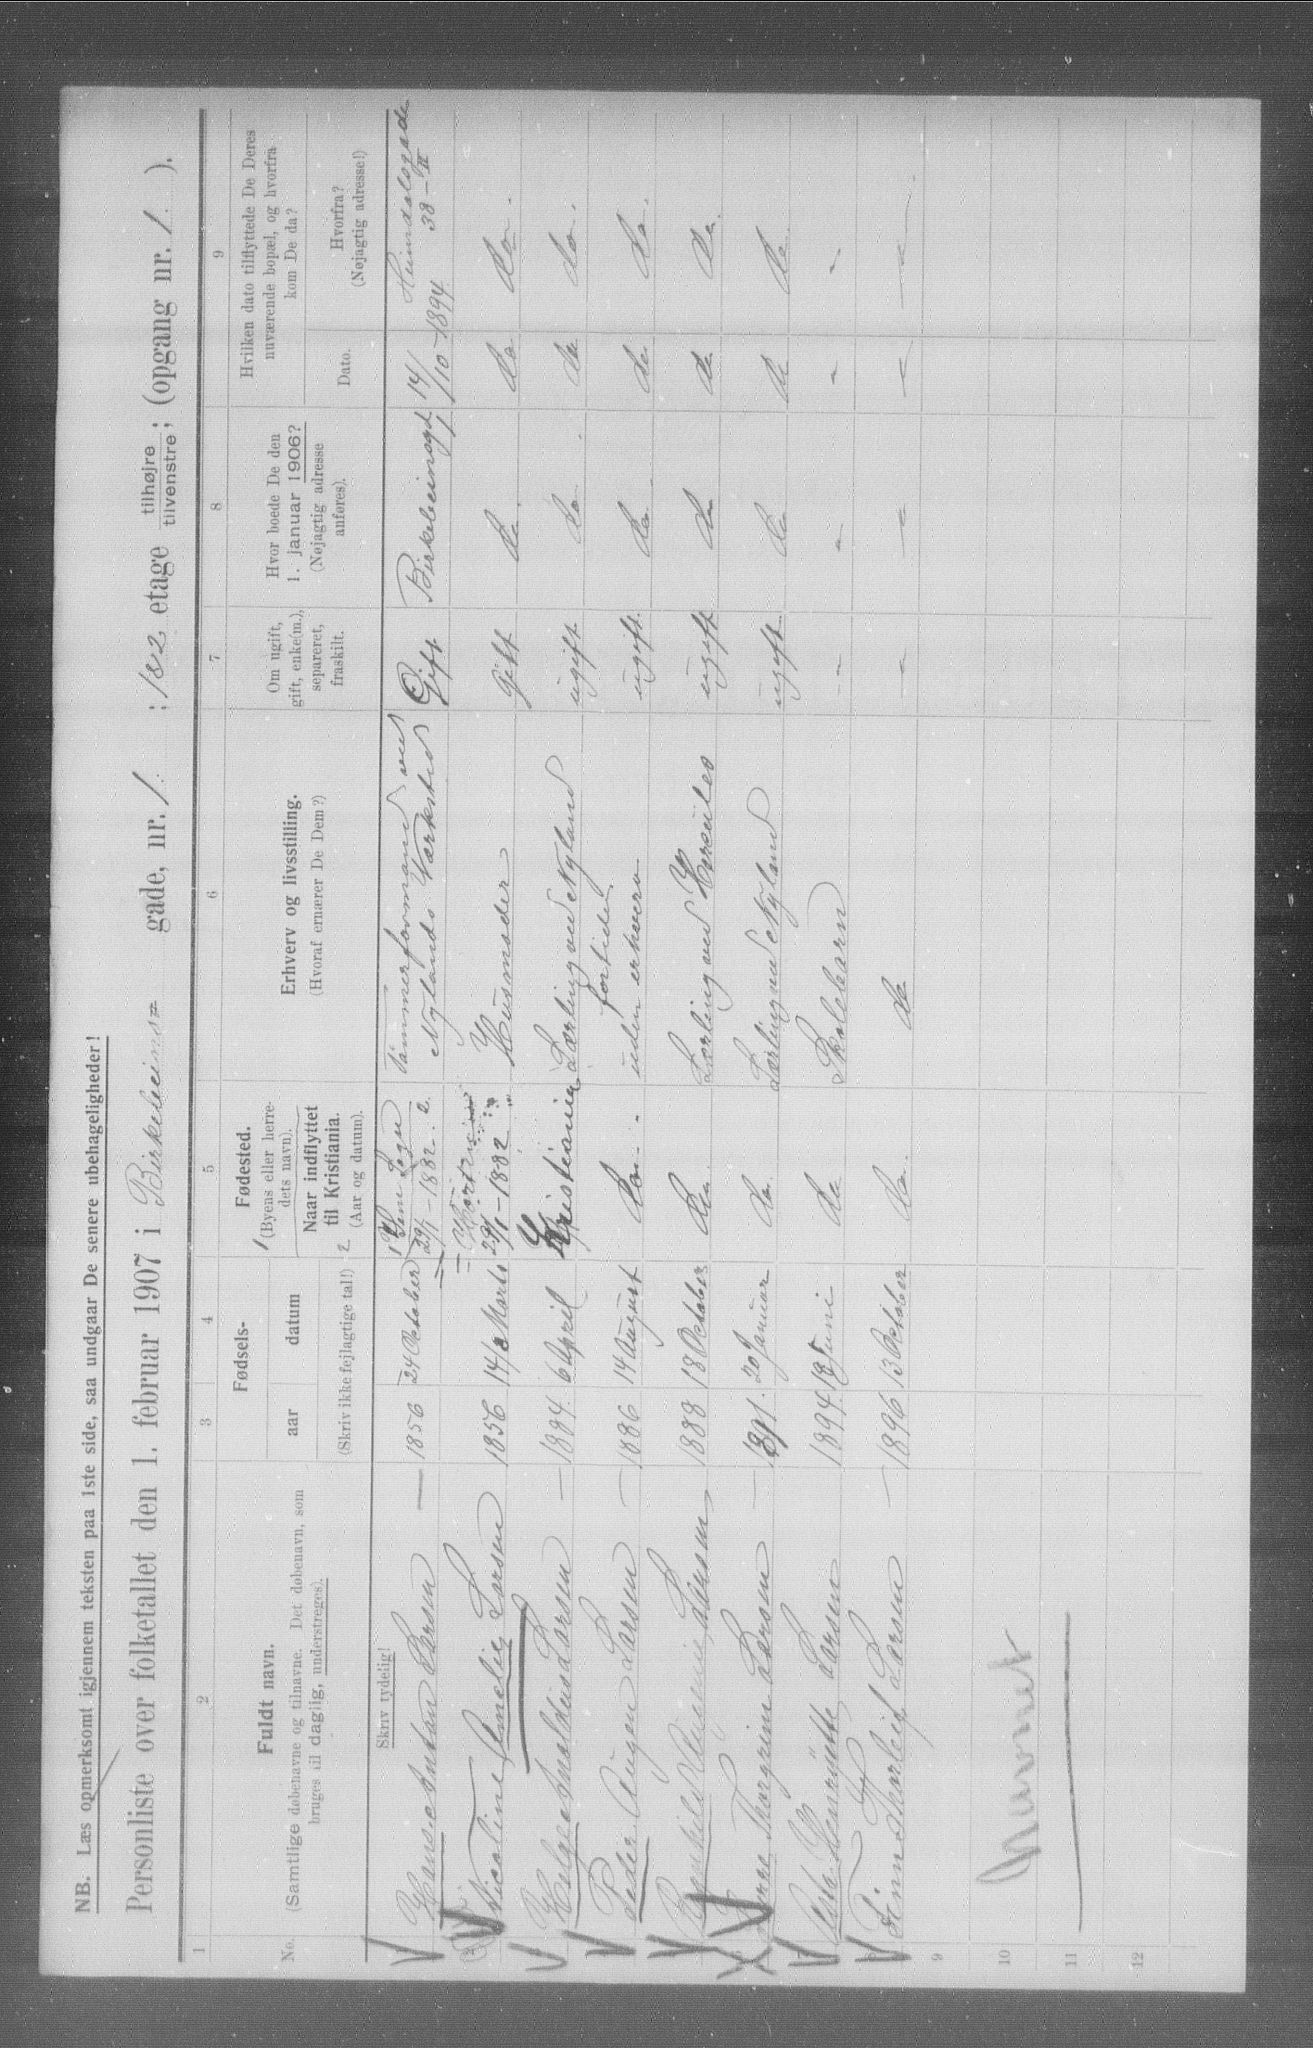 NB. Læs opmerksomt igjennem teksten paa 1ste side, saa undgaar De senere ubehageligheder!
Personliste over folketallet den 1. februar 1907 i Birkebeiner gade, nr. 1. ; 1 & 2 etage tilhøjre tilvenstre; (opgang nr. 1. ).
1 2 3 4 5 6 7 8 9
No.
Fuldt navn.
(Samtlige døbenavne og tilnavne. Det døbenavn, som
bruges til daglig, understreges).
Skriv tydelig!
Fødsels-
aar datum
(Skriv ikke fejlagtige tal!)
1 Fødested.
(Byens eller herre-
dets navn).
Naar indflyttet
til Kristiania.
2 (Aar og datum).
Erhverv og livsstilling.
(Hvoraf ernærer De Dem?)
Om ugift,
gift, enke(m.),
separeret,
fraskilt.
Hvor boede De den
1. januar 1906?
(Nøjagtig adresse
anføres).
Hvilken dato tilflyttede De Deres
nuværende bopæl, og hvorfra
kom De da?
Dato. Hvorfra?
(Nøjagtig adresse!)
1 Hans Anton Larsen — 1856 24 Oktober 29/1 - 1882. Tømmerformand ved Nylands Værksted Gift Birkebeinergd 1 14/10 - 1894 Heimdalsgade 38 - II
2 Nicoline Amelie Larsen 1856 14 Marts 29/1 - 1882 Husmoder Gift do. do do.
3 Helge Arnoldus Larsen — 1884 6 April Kristiania Lærling ved Nyland ugift do. do do.
4 Peder August Larsen — 1886 14 August do. fortiden uden erhverv ugift. do. do do.
5 Ragnhild Larsen 1888 18 Oktober do. Lærling ved Hercules ugift do do do.
6 Thorgrim Larsen — 1891. 20 Januar do. Lærling ved Nyland ugift. do do do.
7 Larsen 1894 18 Juni do Skolebarn - - - -
8 Finn Thorleif Larsen — 1896 13 Oktober do. do - - - -
9
10
11
12